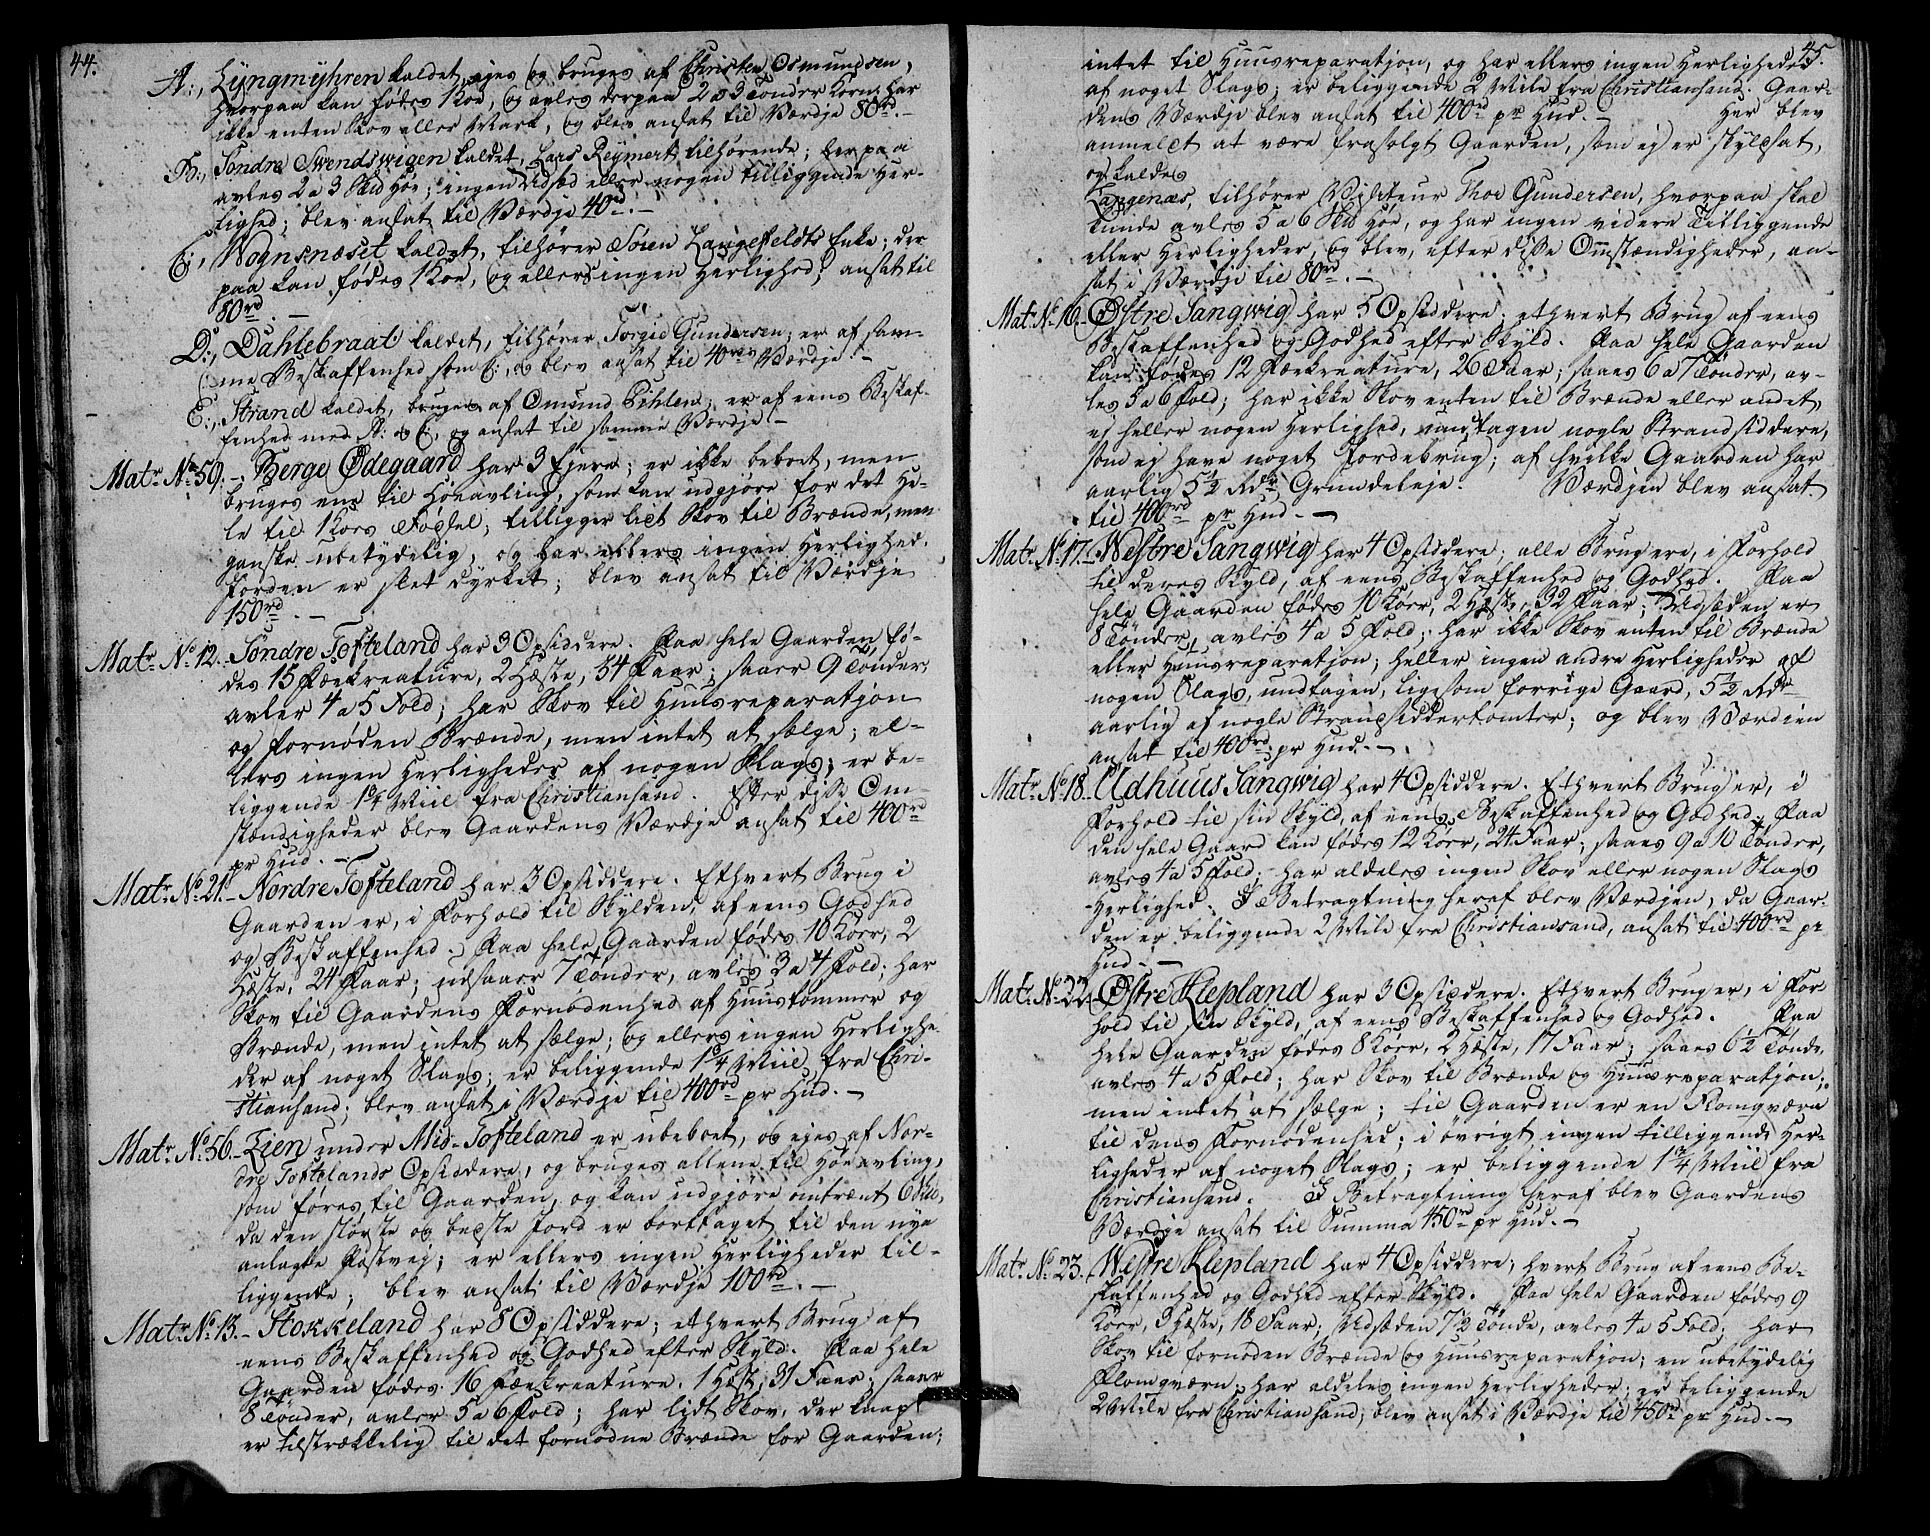 44.
A:, Lyngmyhren kaldet, ejes og bruges af Christen Osmundsen,
hvorpaa kan fødes 1 Koe, og avles derpaa 2 a 3 Tønder Korn; har
ikke enten Skov eller Mark, og blev ansat til Værdje 80rd. –
B:, Søndre Swendswigen kaldet, Lars Reymert tilhørende; herpaa
avles 2 a 3 Skd Høe; ingen Udsæd eller nogen tilliggende Her-
lighed; blev ansat til Værdje 40rd. –
C:, Vognsnæset kaldet, tilhører Søren Langefeldts Enke; der
paa kan fødes 1 Koe, og ellers ingen Herlighed; ansat til
80rd. –
D:, Dahlebraat kaldet, tilhører Torgid Gundersen; er af sam-
me Beskaffenhed som C:, og blev ansat til 40rd Værdje. –
E:, Strand kaldet, bruges af Omund Pihlen; er af eens Beskaf-
fenhed med A: og C:, og ansat til samme Værdje. –
Matr. No. 59. –, Berge Ødegaard har 3 Ejere; er ikke beboet, men
bruges ene til Høeavling, som kan udgjøre for det He-
le til 1 Koes Føedsel; tilligger lidt Skov til Brænde, men
ganske ubetydelig, og har ellers ingen Herlighed.
Jorden er slet dyrket; blev ansat til Værdje
150rd. –
Matr. No. 12. Søndre Tofteland har 3 Opsiddere. Paa hele Gaarden fø-
des 15 Fækreature, 2 Hæste, 34 Faar; saaer 9 Tønder,
avler 4 a 5 Fold; har Skov til Huusreparatjon
og fornøden Brænde, men intet at sælge; el-
lers ingen Herligheder af nogen Slags; er be-
liggende 1 3/4 Miil fra Christiansand. Efter disse Om-
stændigheder blev Gaardens Værdje ansat til 400rd
pr Hud. –
Matr. No. 21. – Nordre Tofteland har 3 Opsiddere. Ethvert Brug i
Gaarden er, i Forhold til Skylden, af eens Godhed
og Beskaffenhed. Paa hele Gaarden fødes 10 Køer, 2
Hæste, 24 Faar; udsaaer 7 Tønder, avles 3 a 4 Fold; har
Skov til Gaardens Fornødenhed af Huustømmer og
Brænde, men intet at sælge; og ellers ingen Herlighe-
der af noget Slags; er beliggende 1 3/4 Miil fra Chri-
stiansand; blev ansat i Værdje til 400rd pr Hud. –
Matr. No. 56. – Lien under Mid-Tofteland er ubeboet, og ejes af Nor-
dre Toftelands Opsiddere, og bruges allene til Høeavling,
som føres til Gaarden, og kan udgjøre omtrent 6 Skd,
da den største og beqste Jord er borttaget til den nye
anlagte Postvej; er ellers ingen Herligheder til-
liggende; blev ansat til Værdje 100rd. –
Matr. No. 13. – Stokkeland har 8 Opsiddere; ethvert Brug af
eens Beskaffenhed og Godhed efter Skyld. Paa hele
Gaarden fødes 16 Fækreature, 1 Hæst, 31 Faar; saaer
8 Tønder, avler 5 a 6 Fold; har lidt Skov, der knap
er tilstrækkelig til det fornødne Brænde for Gaarden;
45.
intet til Huusreparatjon, og har ellers ingen Herligheder
af noget Slags; er beliggende 2 Mile fra Christiansand. Gaar-
dens Værdje blev ansat til 400rd pr Hud. – Her blev
anmeldt at være frasolgt Gaarden, som ej er skyldsat,
og kaldes
Langenæs, tilhører Visiteur Thor Gundersen, hvorpaa skal
kunde avles 5 a 6 Skd Høe, og har ingen videre Tilliggende
eller Herligheder, og blev, efter disse Omstændigheder, an-
sat i Værdje til 80rd. –
Matr. No. 16. – Østre Sangwig har 5 Opsiddere; ethvert Brug af eens
Beskaffenhed og Godhed efter Skyld. Paa hele Gaarden
kan fødes 12 Fækreature, 26 Faar; saaes 6 a 7 Tønder, av-
les 5 a 6 Fold; har ikke Skov enten til Brænde eller andet,
ej heller nogen Herlighed, undtagen nogle Strandsiddere,
som ej have noget Jordebrug; af hvilke Gaarden har
aarlig 5 1/2 Rdr Grundeleje. Værdjen blev ansat
til 400rd pr Hud. –
Matr. No. 17. – Westre Sangwig har 4 Opsiddere; alle Brugere, i Forhold
til deres Skyld, af eens Beskaffenhed og Godhed. Paa
hele Gaarden fødes 10 Køer, 2 Hæste, 32 Faar; Udsæden er
8 Tønder, avles 4 a 5 Fold; har ikke Skov enten til Brænde
eller Huusreparatjon; heller ingen andre Herligheder af
nogen Slags, undtagen, ligesom forrige Gaard, 5 1/2 Rdr
aarlig af nogle Strandsiddertomter; og blev Værdien
ansat til 400rd pr Hud. –
Matr. No. 18. Udhuus Sangwig har 4 Opsiddere. Ethvert Brug er, i
Forhold til sin Skyld, af eens Beskaffenhed og Godhed. Paa
den hele Gaard kan fødes 12 Køer, 24 Faar; saaes 9 a 10 Tønder,
avles 4 a 5 Fold; har aldeles ingen Skov eller nogen Slags
Herlighed. I Betragtning heraf blev Værdjen, da Gaar-
den er beliggende 2 Mile fra Christiansand, ansat til 400rd pr
Hud. –
Matr. No. 22. – Østre Klepland har 3 Opsiddere. Ethvert Brug er, i For-
hold til sin Skyld, af eens Beskaffenhed og Godhed. Paa
hele Gaarden fødes 8 Køer, 2 Hæste, 17 Faar; saaes 6 1/2 Tønde,
avles 4 a 5 Fold; har Skov til Brænde og Huusreparatjon;
men intet at sælge; til Gaarden er en Flomqværn
til dens Fornødenhed; i øvrigt ingen tilliggende Her-
ligheder af noget Slags; er beliggende 1 3/4 Miil fra
Christiansand. I Betragtning heraf blev Gaardens
Værdje ansat til Summa 450rd pr Hud. –
Matr. No. 23. Westre Klepland har 4 Opsiddere, hvert Brug af eens Be-
skaffenhed og Godhed efter Skyld. Paa hele Gaarden fødes 9
Køer, 3 Hæste, 18 Faar; Udsæden 7 1/2 Tønde, avles 4 a 5 Fold; har
Skov til fornøden Brænde og Huusreparatjon; en ubetydelig
Flomqværn; har aldeles ingen Herligheder; er beliggende
2 Mile fra Christiansand; blev ansat i Værdje til 450rd pr Hud. –